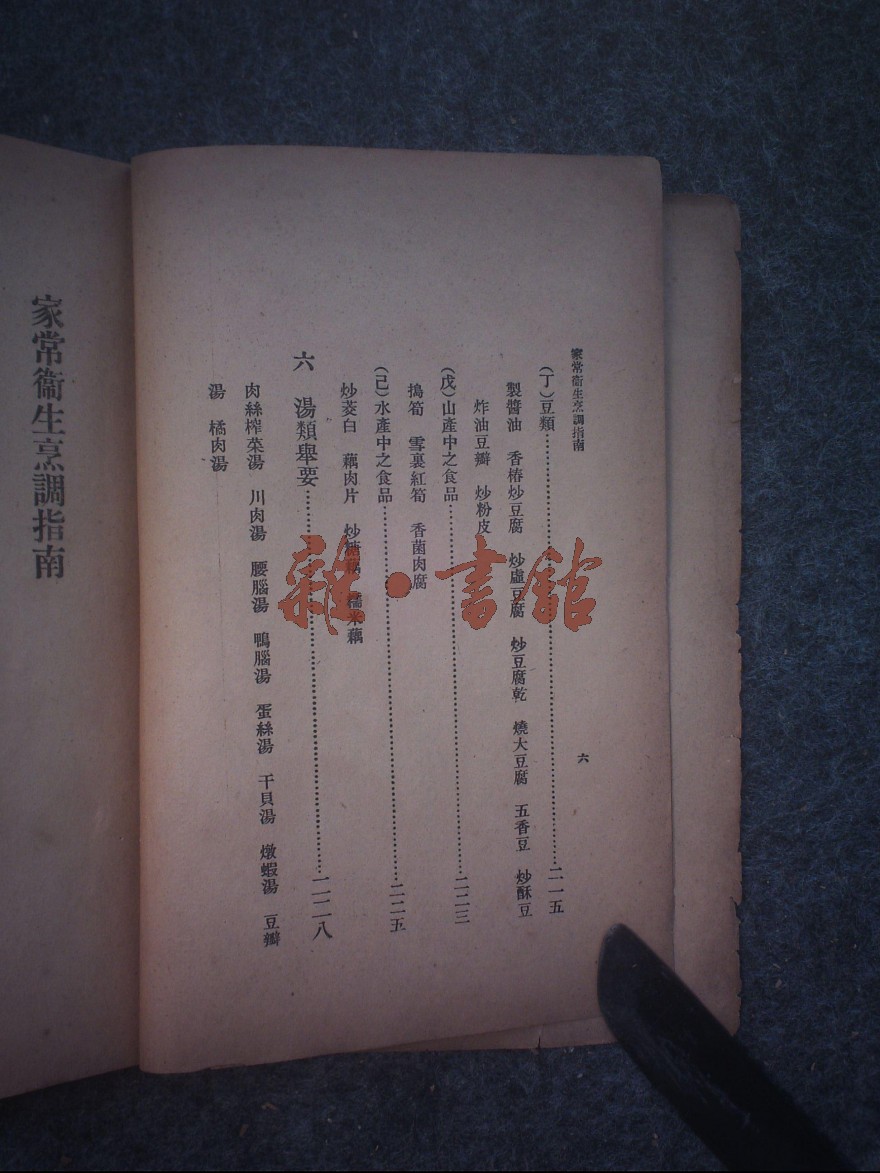 家常衞生烹調指南
六
(丁)豆類……二一五
製醬油　香椿炒豆腐　炒虛豆腐　炒豆腐乾　燒大豆腐　五香豆　炒酥豆
炸油豆瓣　炒粉皮
(戊)山產中之食品……二二三
搗筍　雪裏紅筍　香菌肉腐
(己)水產中之食品……二二五
炒茭白　藕肉片　炒糖藕　糯米藕
六　湯類舉要……二二八
肉絲榨菜湯　川肉湯　腰腦湯　鴨腦湯　蛋絲湯　干貝湯　燉蝦湯　豆瓣
湯　橘肉湯
家常衞生烹調指南
雜·書館